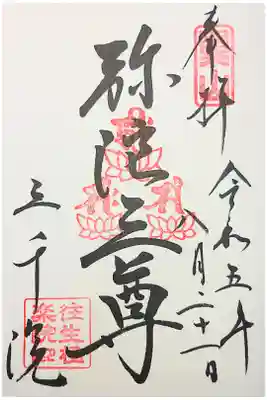 奉拝
令和五年
八月二十一日
弥陀三尊
三千院
往生極
楽院印